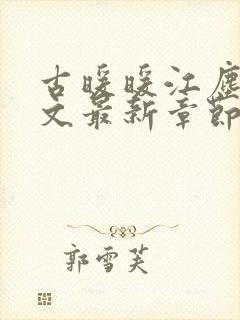 古暖暖江尘
文最新章节
郭雪芙